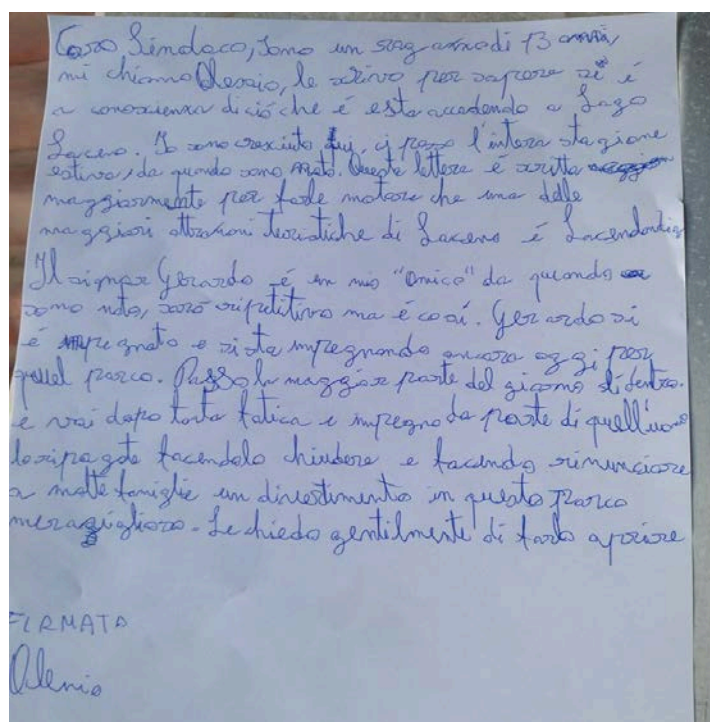 Caro Sindaco, sono un ragazzino di 13 anni,
mi chiamo Alessio, le scrivo per sapere se è
a conoscienza di ciò che è sta accadendo a Lago
Laceno. Io sono cresciuto qui, ci passo l'intera stagione
estiva, da quando sono nato. Questa lettera è scritta
maggiormente per farle notare che una delle
maggiori attrazioni turistiche di Laceno è Lacendondia
Il signor Gerardo è un mio "amico" da quando
sono nato, sarò ripetitivo ma è così. Gerardo si
è impegnato e si sta impegnando ancora oggi per
quel parco. Passo la maggior parte del giorno lì dentro.
e voi dopo tanta fatica e impegno da parte di quell'uomo
lo ripagate facendolo chiudere e facendo rinunciare
a molte famiglie un divertimento in questo parco
meraviglioso. Le chiedo gentilmente di farlo aprire
FIRMATO
Alessio